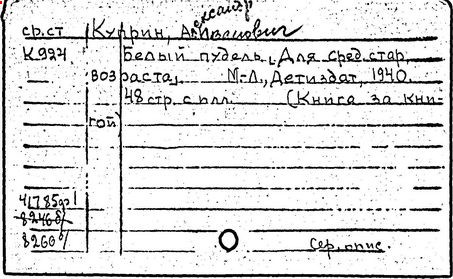 ср.ст Куприн, Александр Иванович
К924 Белый пудель. Для сред. стар.
возраста. М-Л., Детиздат, 1940.
48 стр. с илл. (Книга за кни-
гой)
41785
8246
8260
Сер. опис.